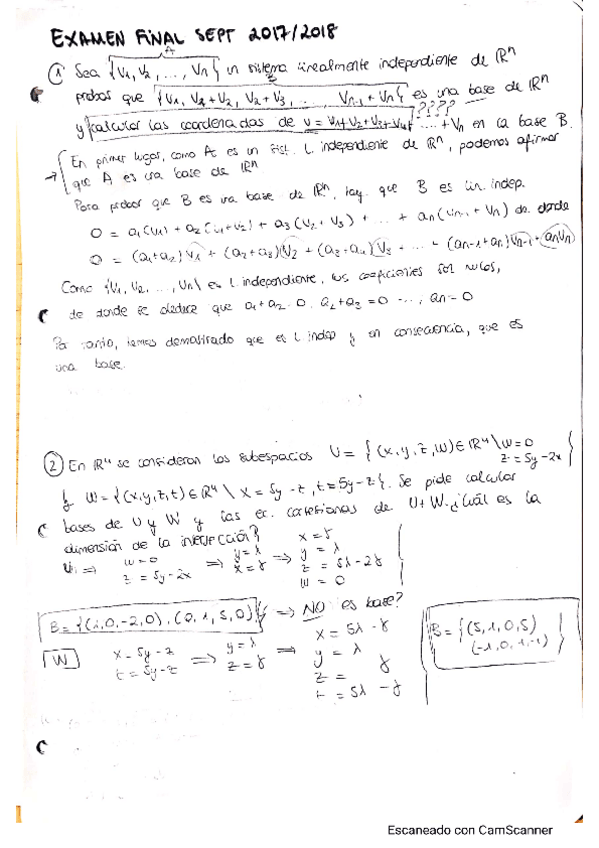 EXAMEN FINAL SEPT 2017/2018
① Sea {V1, V2, ..., Vn} un sistema linealmente independiente de ℝⁿ
A
probar que {V1, V1+V2, V2+V3, ..., Vn-1+Vn} es una base de ℝⁿ
y calcular las coordenadas de v = V1+V2+V3+V4+ ... +Vn en la base B.
????
En primer lugar, como A es un sist. L independiente de ℝⁿ, podemos afirmar
que A es una base de ℝⁿ
Para probar que B es una base de ℝⁿ, hay que B es lin. indep.
0 = a1(V1) + a2(V1+V2) + a3(V2+V3) + ... + an(Vn-1+Vn) de donde
0 = (a1+a2)V1 + (a2+a3)V2 + (a3+a4)V3 + ... + (an-1+an)Vn-1 + anVn
Como {V1, V2, ..., Vn} es L independiente, los coeficientes son nulos,
de donde se deduce que a1+a2=0, a2+a3=0 ..., an=0
Por tanto, hemos demostrado que es L indep y en consecuencia, que es
una base.
② En ℝ⁴ se consideran los subespacios U = {(x,y,z,w)∈ℝ⁴ \ w=0
z=5y-2x}
y W = {(x,y,z,t)∈ℝ⁴ \ x=5y-z, t=5y-z}. Se pide calcular
bases de U y W y las ec. cartesianas de U+W. ¿Cuál es la
dimensión de la intersección?
U: => w=0 => y=λ => x=γ
z=5y-2x x=γ y=λ
z=5λ-2γ
w=0
B={(1,0,-2,0),(0,1,5,0)} => NO es base?
W x=5y-z => y=λ => x=5λ-γ
t=5y-z z=γ y=λ
z=γ
t=5λ-γ
B={(5,1,0,5)
(-1,0,1,-1)}
Escaneado con CamScanner